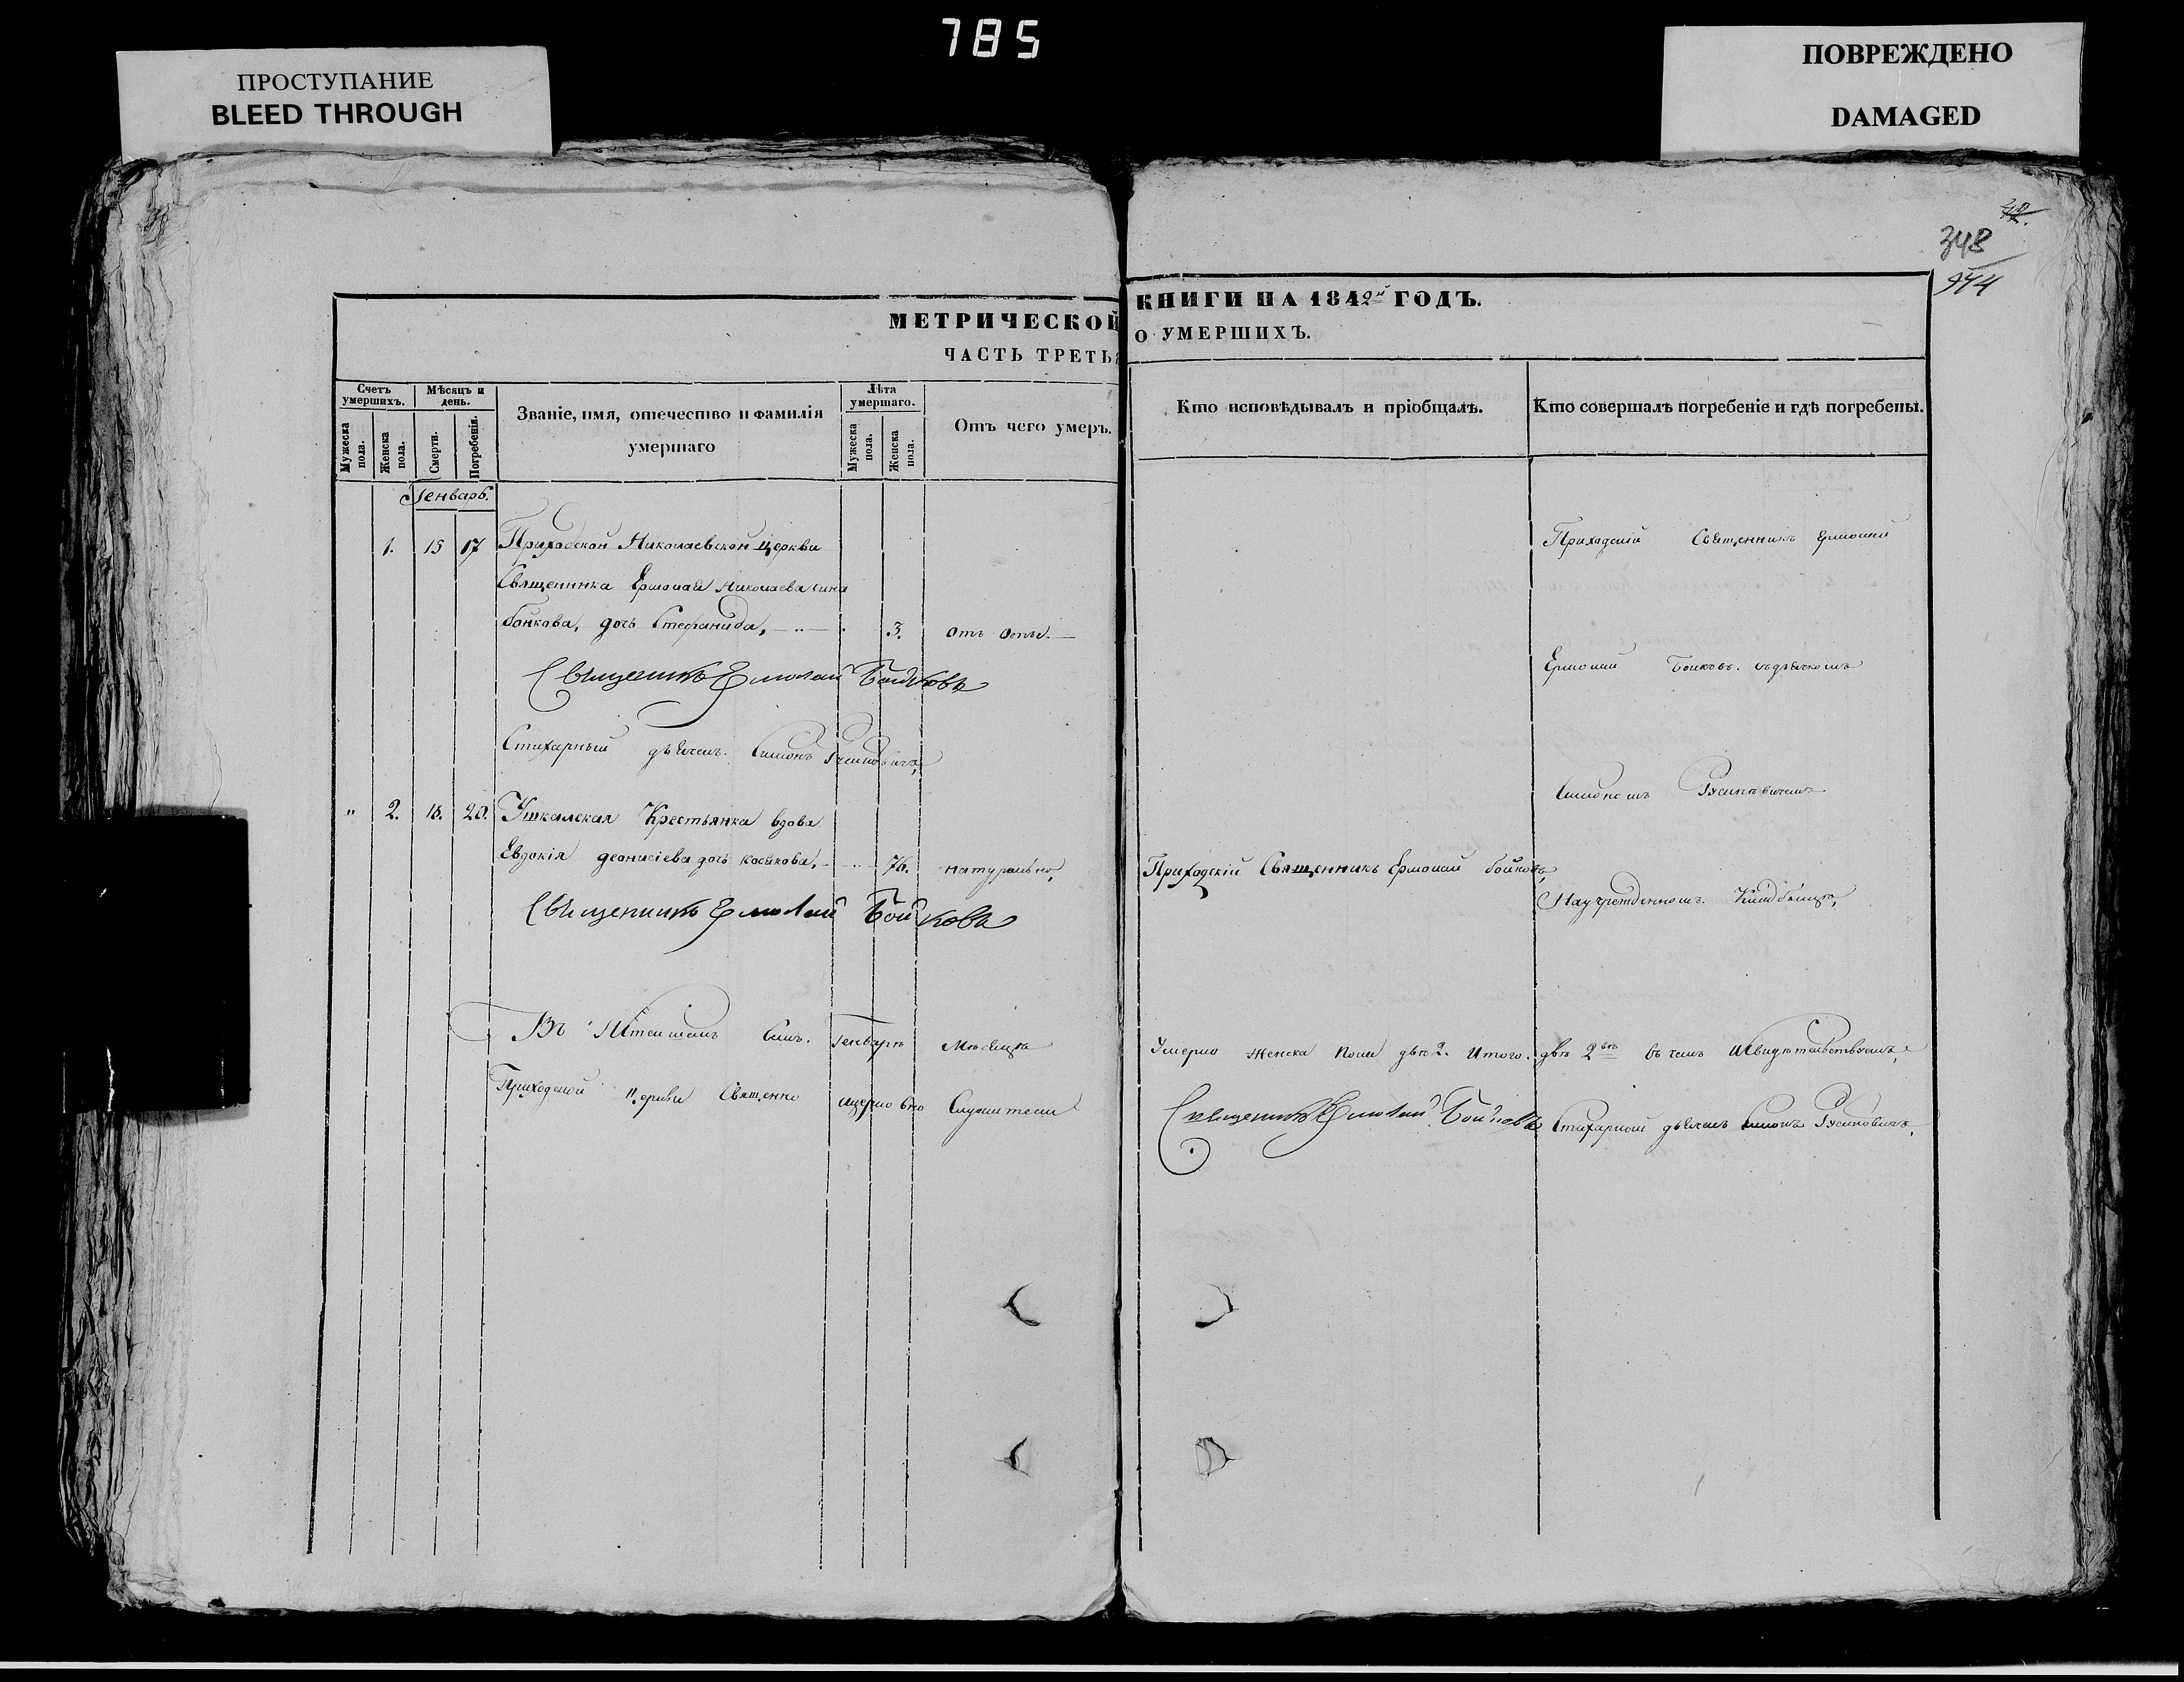 785
ПРОСТУПАНИЕ
BLEED THROUGH
ПОВРЕЖДЕНО
DAMAGED
348
МЕТРИЧЕСКОЙ КНИГИ НА 1842й ГОДЪ.
ЧАСТЬ ТРЕТЬЯ О УМЕРШИХЪ.
Счетъ умершихъ.
Мѣсяцъ и день.
Званіе, имя, отечество и фамилія умершаго
Лѣта умершаго.
Отъ чего умеръ.
Кто исповѣдывалъ и пріобщалъ.
Кто совершалъ погребеніе и гдѣ погребены.
Мужеска пола.
Женска пола.
Смерти.
Погребенія.
Мужеска пола.
Женска пола.
Генварь.
1. 15 17 Приходской Николаевской церкви
Священника Ермолая Николаева сина
бойкова, дочь Стефанида, 3. отъ оспы.
Священникъ Ермолай Бойковъ
Стихарный дьячекъ. Симонъ
Приходскій Священникъ Ермолай
Ермолай Бойковъ. съ дьячкомъ
Симономъ
" 2. 18. 20. Ушкалская Крестьянка вдова
Евдокія деонисіева дочь косякова, 76. натурально,
Священникъ Ермолай Бойковъ
Приходскій Священникъ Ермолай бойковъ,
На учрежденномъ. Кладбищѣ,
Въ Семъ. Генварѣ Мѣсяцѣ Умерло женска пола двѣ 2. Итого. двѣ 2 въ чемъ
Приходской церкви Священно Служители
Священникъ Ермолай Бойковъ Стихарной дьячекъ Симонъ